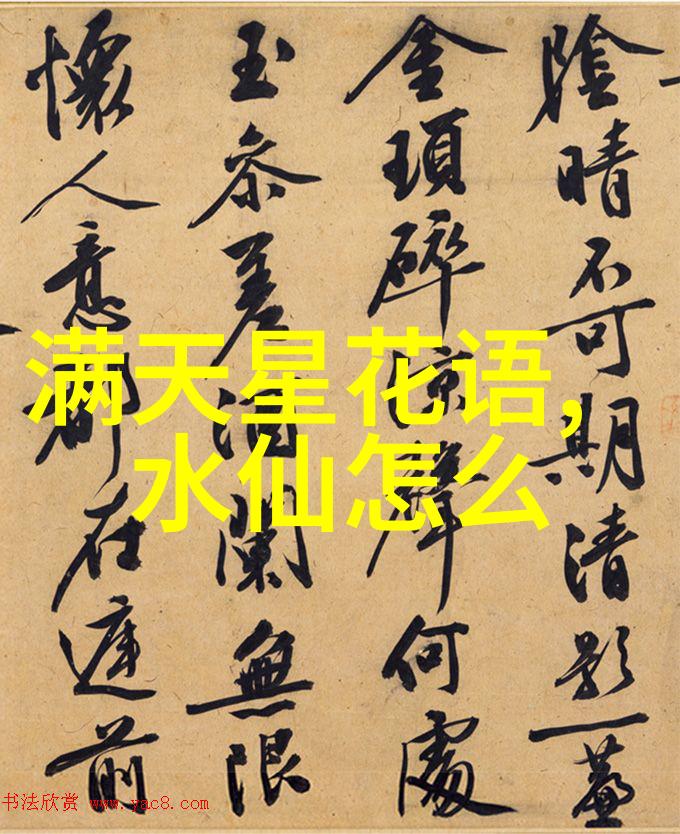 陰晴不可期清影一簾
金瑣碎涼聲何處
玉參差酒闌無限
懷人意都在庭前
满天星花语,
水仙怎么
书法欣赏 www.yac8.com